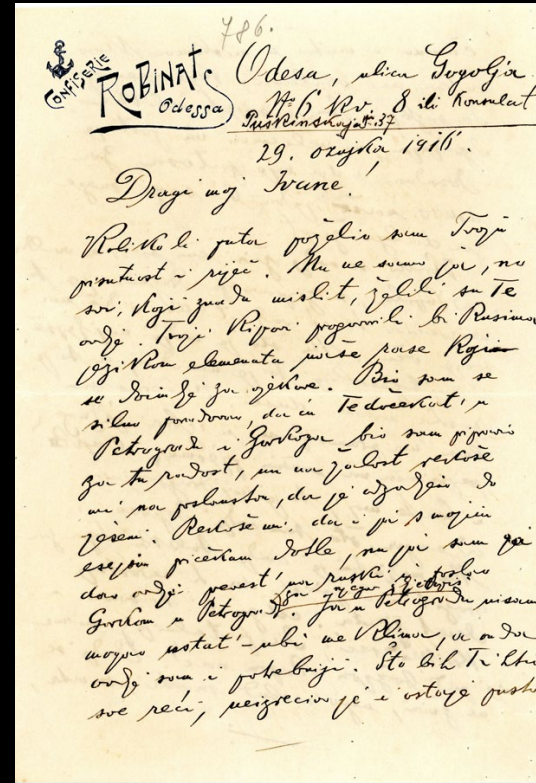 786.
CONFISERIE
ROBINAT
Odessa
Odesa, ulica Gogolja
№ 6 kv. 8 ili Konsulat
Puškinskaja 37
29. ožujka 1916.
Dragi moj Ivane!
Koliko li puta poželio sam Tvoju
prisutnost i riječ. Ma ne samo ja, no
svi, koji znadu mislit, željeli su Te
ovdje. Tvoji kipovi progovorili bi Rusima
jezikom elementa naše rase koji
se za vjekove. Bio sam se
silno da ću Te dočekat' u
Petrogradu i Gorkoga bio sam pripravio
za tu radost, no na žalost rekoše
mi na poslanstvu, da je odgodjeno do
jeseni. Rekoše mi, da i ja s mojim
esejom pričekam dotle, no ja sam ga
dao ovdje prevest' na ruski i poslao
Gorkom u Petrograd za njegov
Ja u Petrogradu nisam
mogao ostat' - ubi me klima, a onda
ovdje sam i potrebniji. Što bih Ti htio
sve reći, neizrecivo je i ostaje pusto